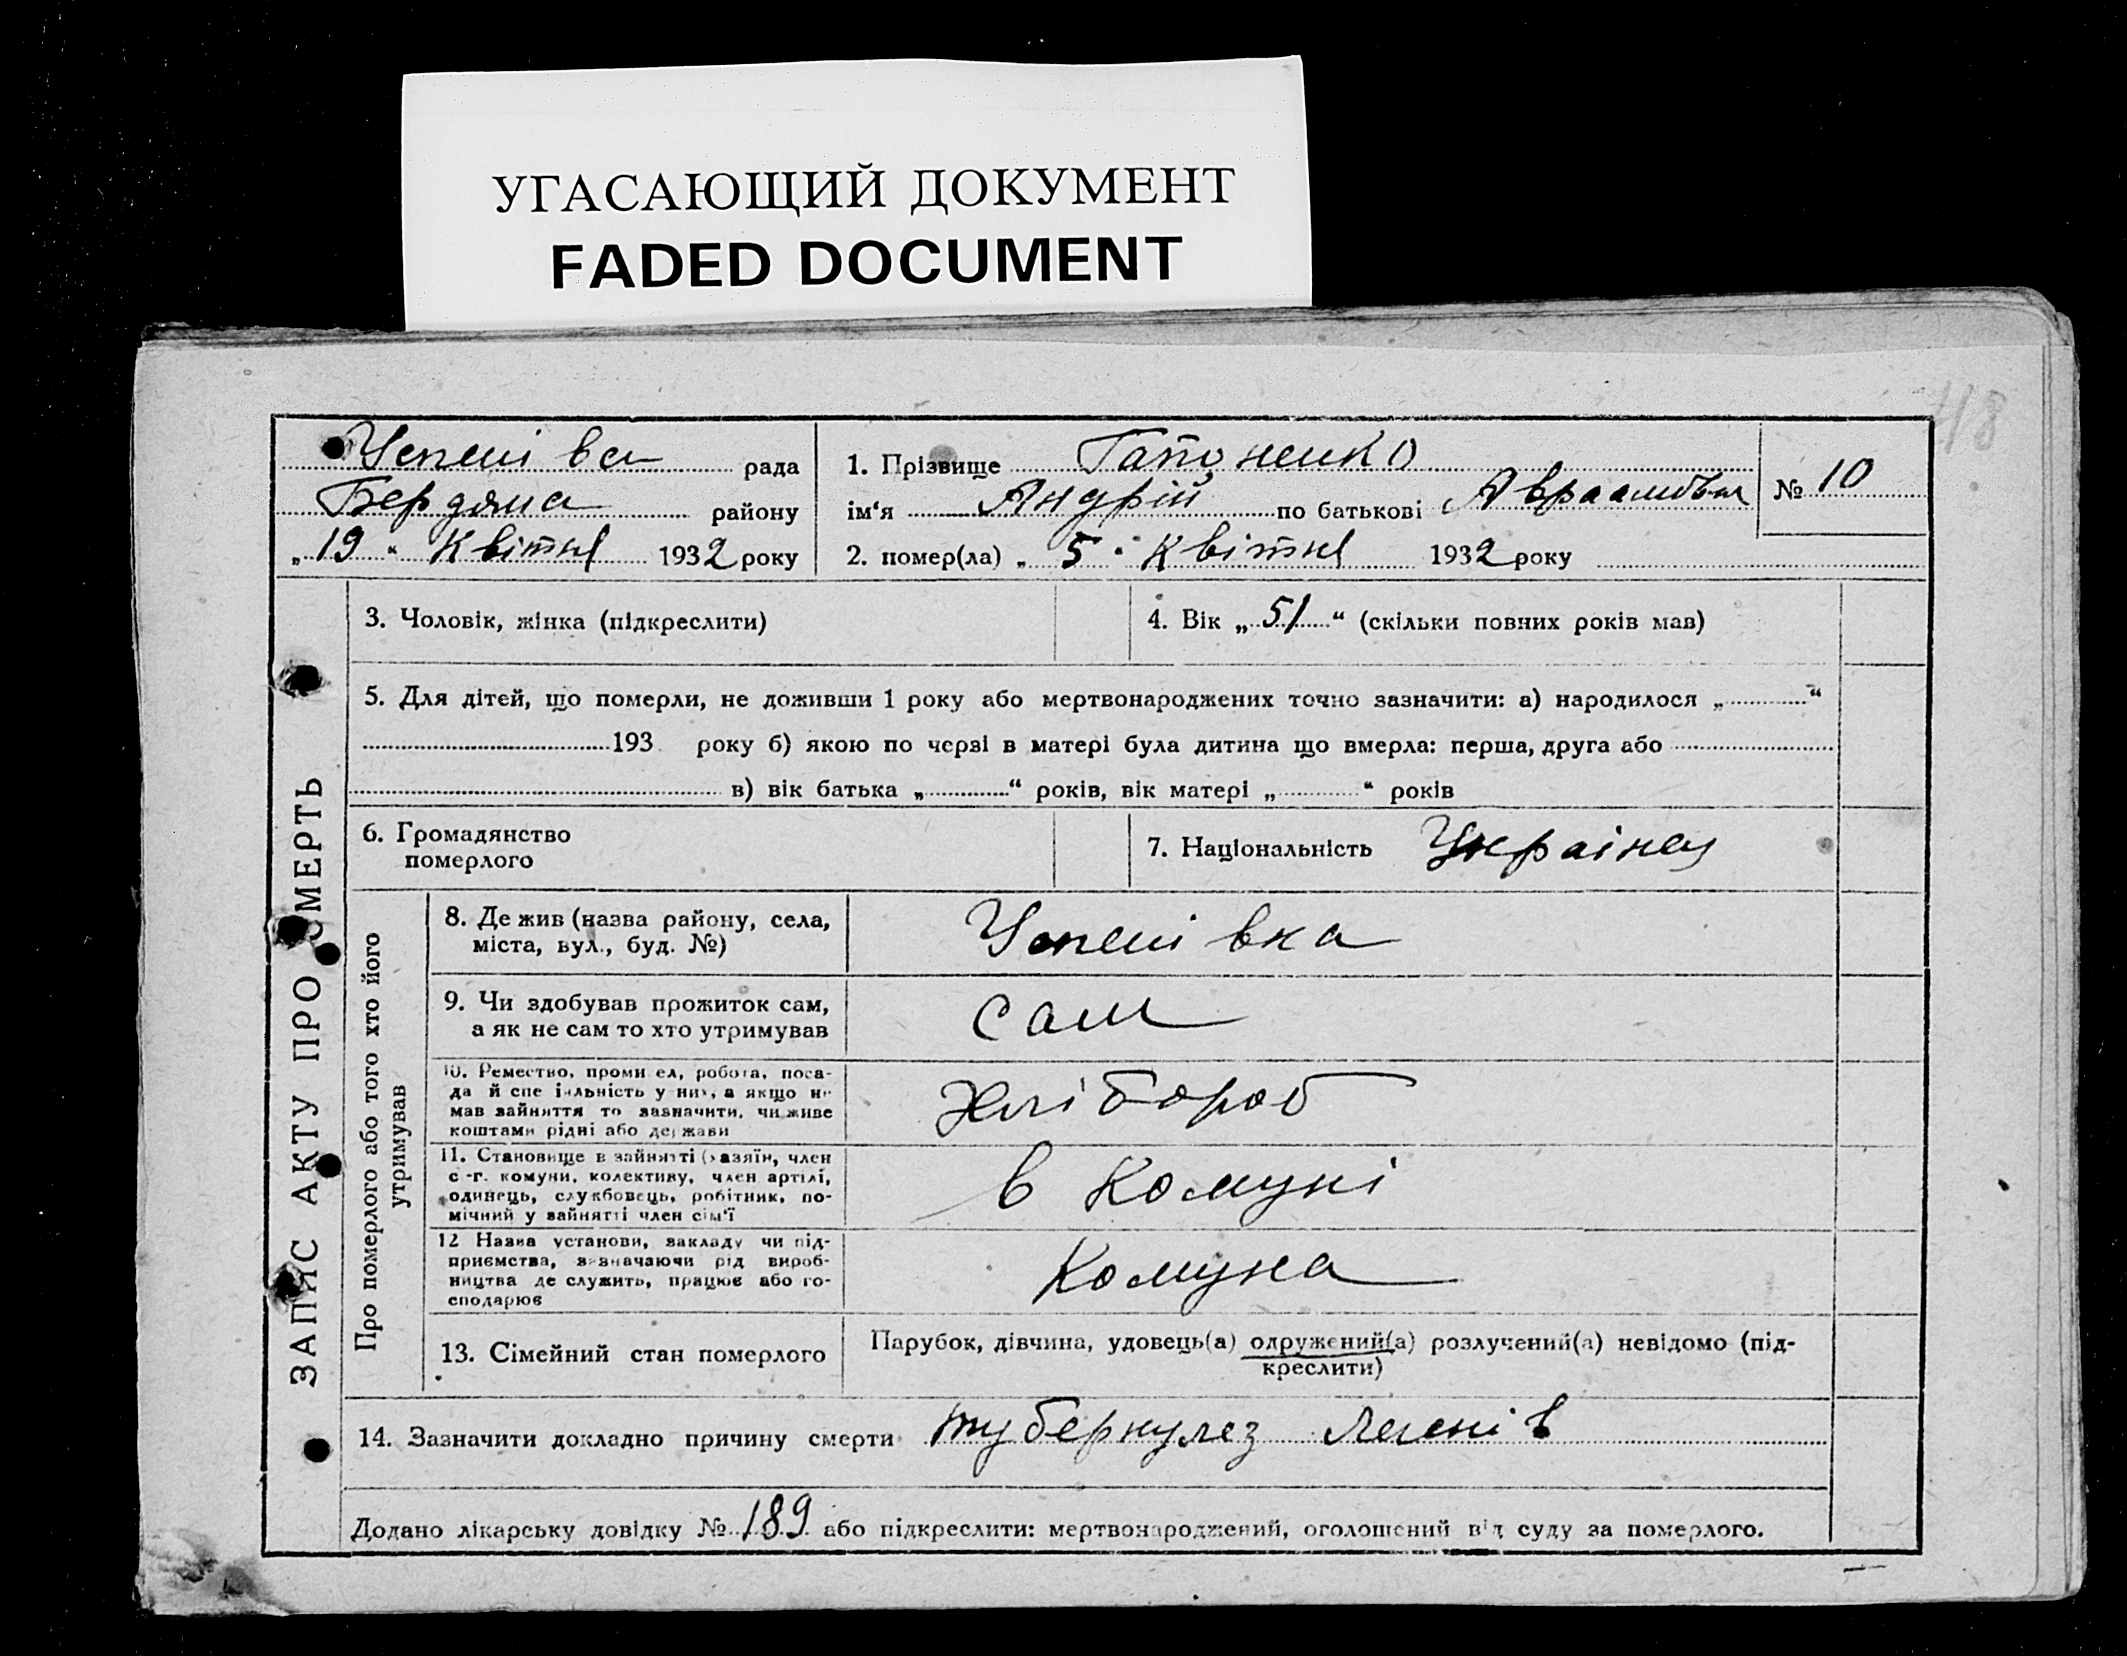 УГАСАЮЩИЙ ДОКУМЕНТ
FADED DOCUMENT
48
Успені вси рада
Бердяма району
„19“ Квітня 1932 року
1. Прізвище Гапоненко
ім‘я Андрій по батькові Авраамович
№ 10
2. помер(ла) „5“ Квітня 1932 року
ЗАПИС АКТУ ПРО СМЕРТЬ
3. Чоловік, жінка (підкреслити)
4. Вік „51“ (скільки повних років мав)
5. Для дітей, що померли, не доживши 1 року або мертвонароджених точно зазначити: а) народилося „ “
193 року б) якою по черзі в матері була дитина що вмерла: перша, друга або
в) вік батька „ “ років, вік матері „ “ років
6. Громадянство
померлого
7. Національність Українец
Про померлого або того хто його
утримував
8. Де жив (назва району, села,
міста, вул., буд. №)
Успенівка
9. Чи здобував прожиток сам,
а як не сам то хто утримував
сам
10. Ремество, промисел, робота, поса-
да й спеціяльність у них, а якщо не
мав зайняття то зазначити, чи живе
коштами рідні або держави
Хлібороб
11. Становище в зайнятті (хазяїн, член
с.-г. комуни, колективу, член артілі,
одинець, службовець, робітник, по-
мічний у зайнятті член сім‘ї
в Комуні
12 Назва установи, закладу чи під-
приємства, зазначаючи рід вироб-
ництва де служить, працює або го-
сподарює
Комуна
13. Сімейний стан померлого
Парубок, дівчина, удовець(а) одружений(а) розлучений(а) невідомо (під-
креслити)
14. Зазначити докладно причину смерти туберкулез Легенів
Додано лікарську довідку № 189 або підкреслити: мертвонароджений, оголошений від суду за померлого.